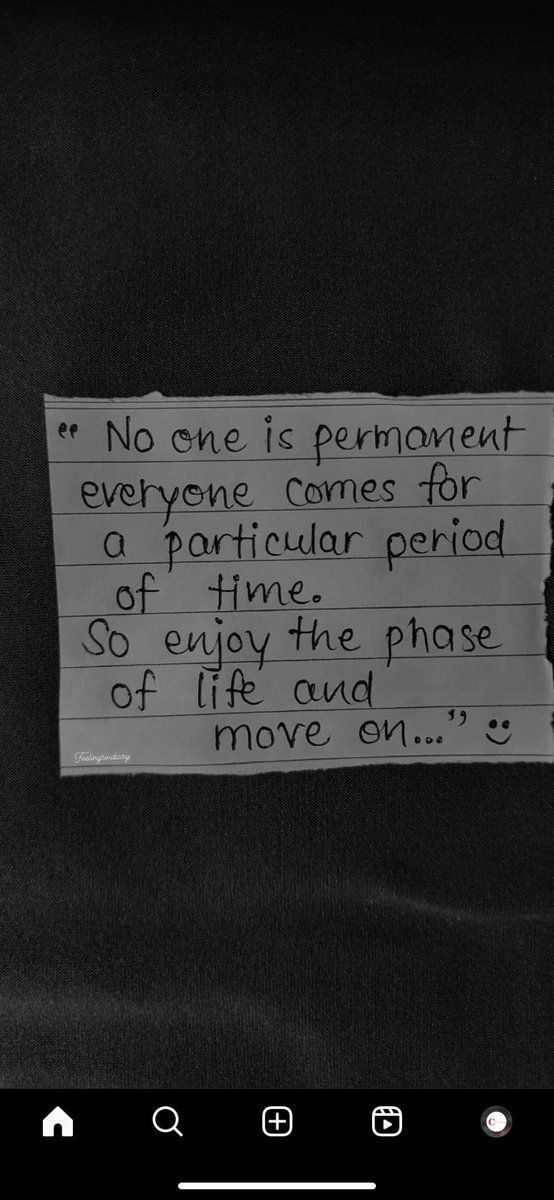 “ No one is permanent
everyone comes for
a particular period
of time.
So enjoy the phase
of life and
move on...” :)
Feelingsindiary